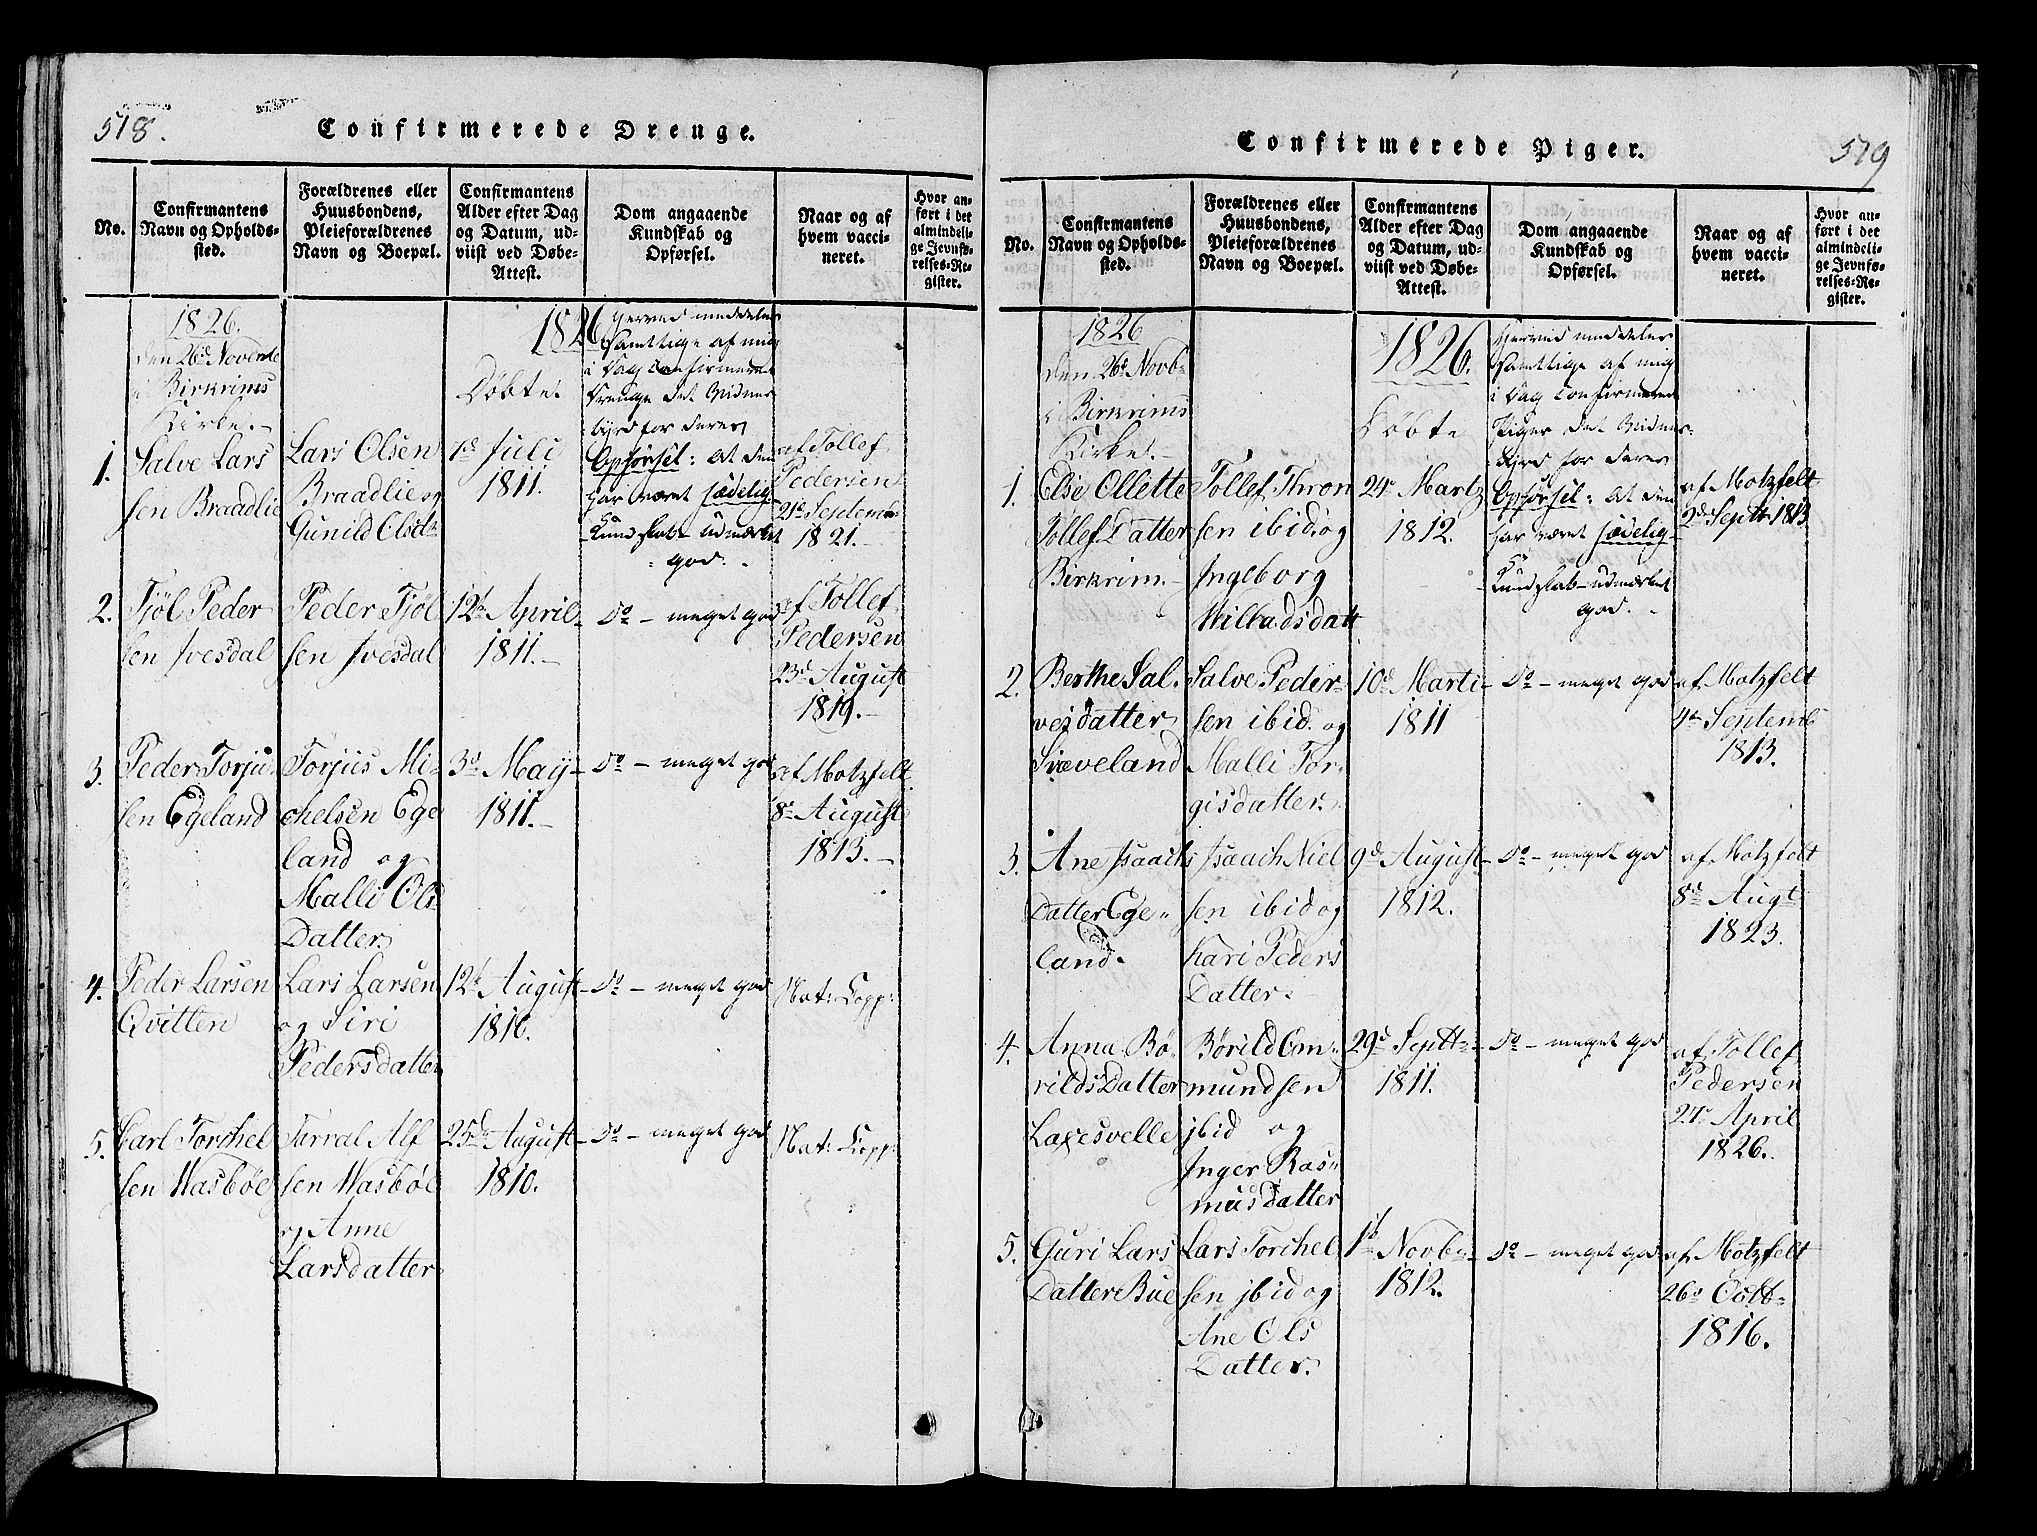 518.
Confirmerede Drenge.
No.
Confirmantens
Navn og Opholds-
sted.
Forældrenes eller
Huusbondens,
Pleieforældrenes
Navn og Boepæl.
Confirmantens
Alder efter Dag
og Datum, ud-
viist ved Døbe-
Attest.
Dom angaaende
Kundskab og
Opførsel.
Naar og af
hvem vacci-
neret.
Hvor an-
ført i det
almindeli-
ge Jevnfø-
relses-Re-
gister.
1826.
den 26d Novembr
i Birkrims
Kirke.-
1826
Døbte.
Herved meddeles
samtlige af mig
i Dag Confirmerede
Drenge det Vidnes-
byrd for deres
Opførsel: at den
har været sædelig
Kundskab - udmærket
god. -
1.
Salve Lars
sen Braadlie
Lars Olsen
Braadlie og
Gunild Olsdtr
1d Juli
1811.
af Tollef
Pedersen
21d Septembr
1821.-
2.
Tjöl Peder
sen Ivesdal
Peder Tjöl
sen Ivesdal
12d April
1811.-
do - meget god
af Tollef
Pedersen
23d August
1819.-
3.
Peder Torju
sen Egeland
Torjus Mi-
chelsen Ege
land og
Malli Ols
Datter
3d May
1811.-
do - meget god
af Motzfelt
8d August
1813.-
4.
Peder Larsen
Qvitten
Lars Larsen
og Siri
Pedersdatter
12d August
1810.
do - meget god
Nat: Kopp:
5.
Carl Torchel
sen Wasbøe
Tarral Alf
sen Wasbøe
og Anne
Larsdatter
25d August
1810.
do - meget god
Nat: Kopp:
Confirmerede Piger.
519
No.
Confirmantens
Navn og Opholds-
sted.
Forældrenes eller
Huusbondens,
Pleieforældrenes
Navn og Boepæl.
Confirmantens
Alder efter Dag
og Datum, ud-
viist ved Døbe-
Attest.
Dom angaaende
Kundskab og
Opførsel.
Naar og af
hvem vacci-
neret.
Hvor an-
ført i det
almindeli-
ge Jevnfø-
relses-Re-
gister.
1826
den 26d Novb-
i Birkrims
Kirke.-
1826.
Døbte
Herved meddeles
samtlige af mig
i Dag Confirmerede
Piger det Vidnes-
byrd for deres
Opførsel: at den
har været sædelig
Kundskab - udmærket
god. -
1.
Else Ollette
Tollefs Datter
Birkrim.-
Tollef Thron
sen ibid: og
Ingeborg
Willadsdatt
24d Martz
1812.
af Motzfelt
2d Septr 1813
2.
Berthe Sal.
vesdatter
Sræveland
Salve Peder-
sen ibid. og
Malli Tor-
gisdatter.
10d Marti
1811
do - meget god
af Motzfelt
4d Septemb
1813.
3.
Ane Isaachs
Datter Ege-
land.
Isaach Niel
sen ibid og
Kari Peders
Datter.
9d August
1812.
do - meget god
af Motzfelt
8d Augt
1823.
4.
Anna Bø-
rilds Datter
Laxesvelle
Børild Om-
mundsen
jbid og
Inger Ras-
musdatter
29d Septr
1811.
do - meget god
af Tollef
Pedersen
24d April
1826.
5.
Guri Lars
Datter Bue
Lars Torchel
sen jbid og
Ane Ols
Datter.
1d Novb-
1812.
do - meget god
af Motzfelt
26d Octb-
1816.